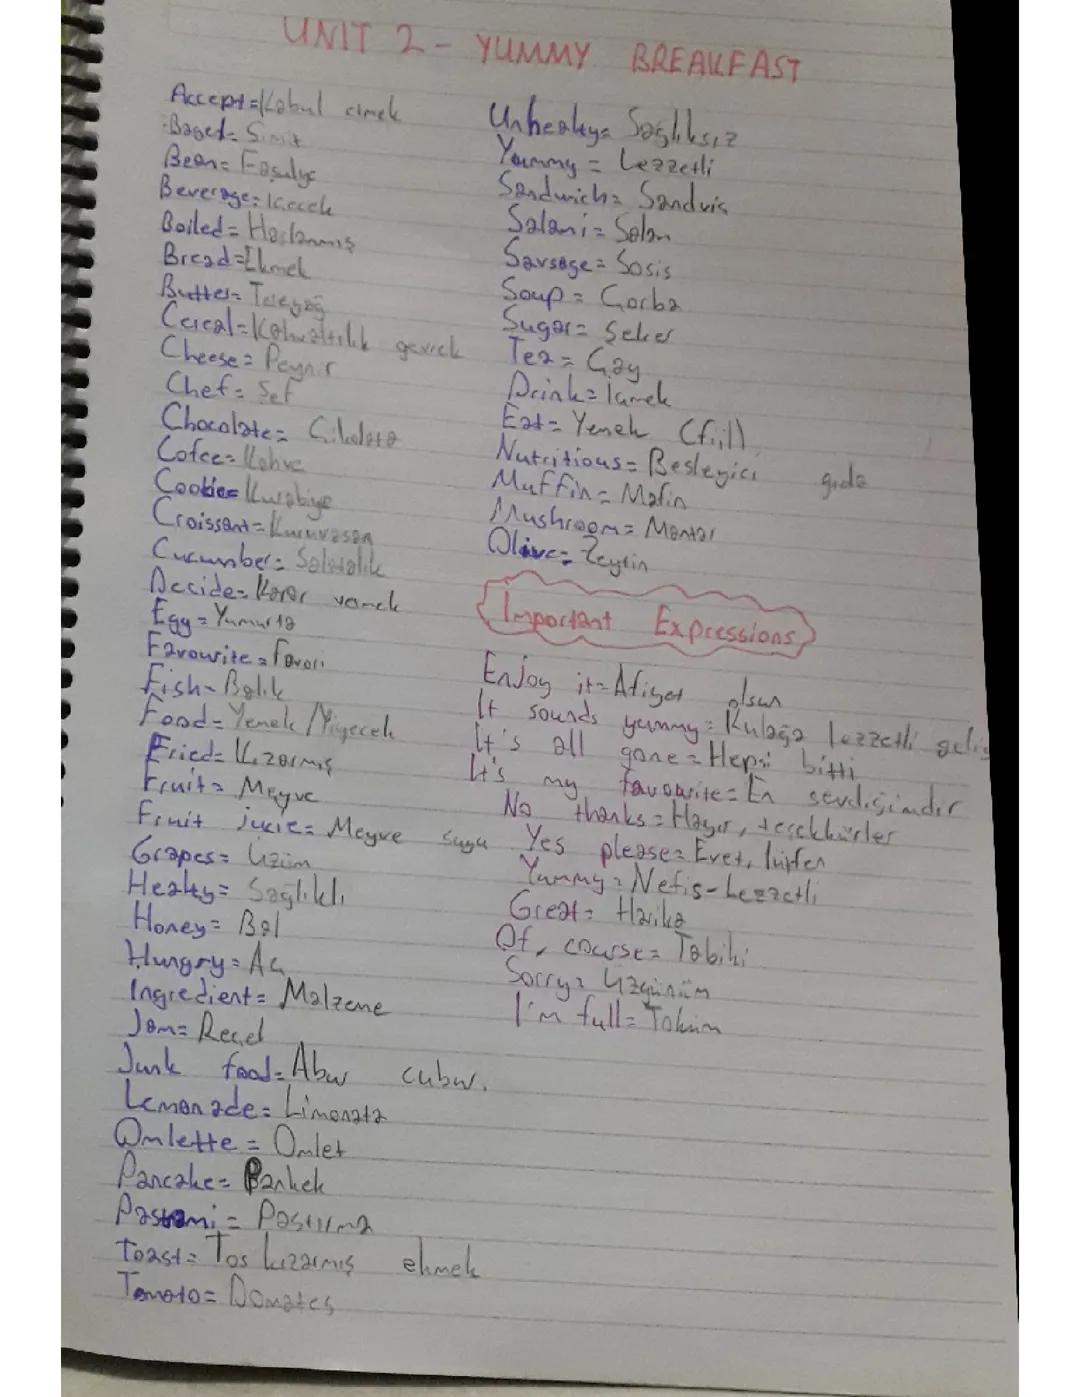 UNIT 2 - YUMMY BREAKFAST
Accept = Kabul etmek
Bagel = Simit
Bean = Fasulye
Beverage = İçecek
Boiled = Haşlanmış
Bread = Ekmek
Butter = Tereyağ
Cereal = Kahvaltılık gevrek
Cheese = Peynir
Chef = Şef
Chocolate = Çikolata
Cofee = Kahve
Cookie = Kurabiye
Croissant = Kuruvasan
Cucumber = Salatalık
Decide = Karar vermek
Egg = Yumurta
Favourite = Favori
Fish = Balık
Food = Yemek / Yiyecek
Fried = Kızarmış
Fruit = Meyve
Fruit jucie = Meyve suyu
Grapes = Üzüm
Healty = Sağlıklı
Honey = Bal
Hungry = Aç
Ingredient = Malzeme
Jam = Reçel
Junk food = Abur cubur.
Lemonade = Limonata
Omlette = Omlet
Pancake = Pankek
Pastrami = Pastırma
Toast = Tos kızarmış ekmek
Tomato = Domates
Unhealty = Sağlıksız
Yummy = Lezzetli
Sandwich = Sandviç
Salami = Salam
Sausage = Sosis
Soup = Çorba
Sugar = Şeker
Tea = Çay
Drink = İçmek
Eat = Yemek (fiil)
Nutritious = Besleyici gıda
Muffin = Mafin
Mushroom = Mantar
Olive = Zeytin
Important Expressions
Enjoy it = Afiyet olsun
It sounds yummy = Kulağa lezzetli geliy
It's all gone = Hepsi bitti
It's my favourite = En sevdiğimdir
No thanks = Hayır, teşekkürler
Yes please = Evet, lütfen
Yummy = Nefis - Lezzetli
Great = Harika
Of course = Tabiki
Sorry = Üzgünüm
I'm full = Tokum